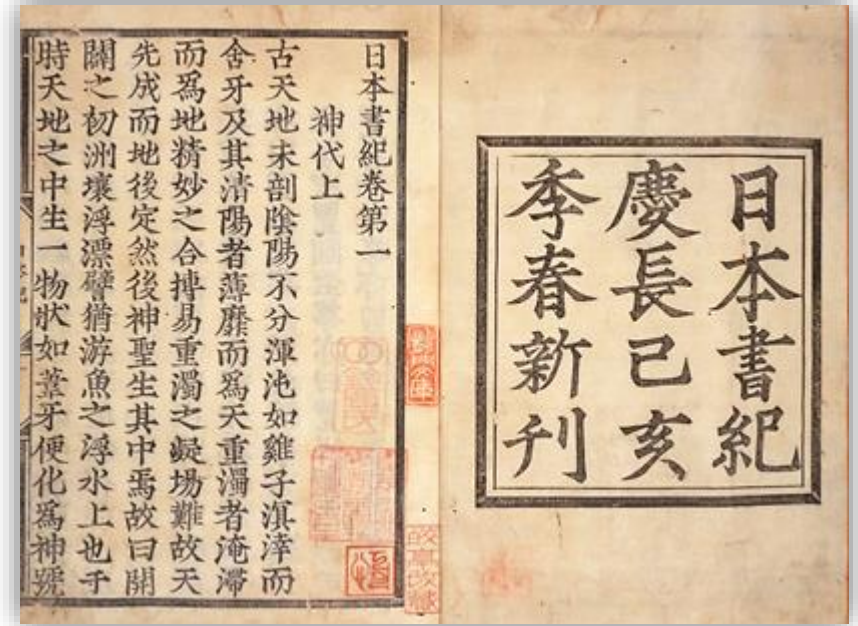 日本書紀
慶長己亥
季春新刊
日本書紀卷第一
神代上
古天地未剖陰陽不分渾沌如雞子溟涬而
含牙及其清陽者薄靡而爲天重濁者淹滯
而爲地精妙之合搏易重濁之凝場難故天
先成而地後定然後神聖生其中焉故曰開
闢之初洲壤浮漂譬猶游魚之浮水上也于
時天地之中生一物狀如葦牙便化爲神號
皎亭收藏